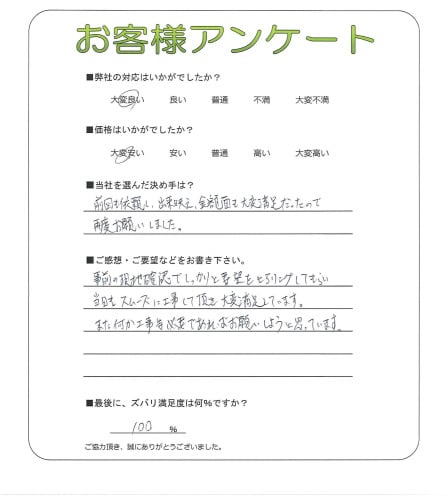 お客様アンケート
■弊社の対応はいかがでしたか？
大変良い 良い 普通 不満 大変不満
■価格はいかがでしたか？
大変安い 安い 普通 高い 大変高い
■当社を選んだ決め手は？
前回も依頼し、出来映え、金額面も大変満足だったので
再度お願いしました。
■ご感想・ご要望などをお書き下さい。
事前の現地確認でしっかりと要望をヒヤリングしてもらい
当日もスムーズに工事して頂き大変満足しています。
また何か工事等必要であればお願いしようと思っています。
■最後に、ズバリ満足度は何％ですか？
100 ％
ご協力頂き、誠にありがとうございました。